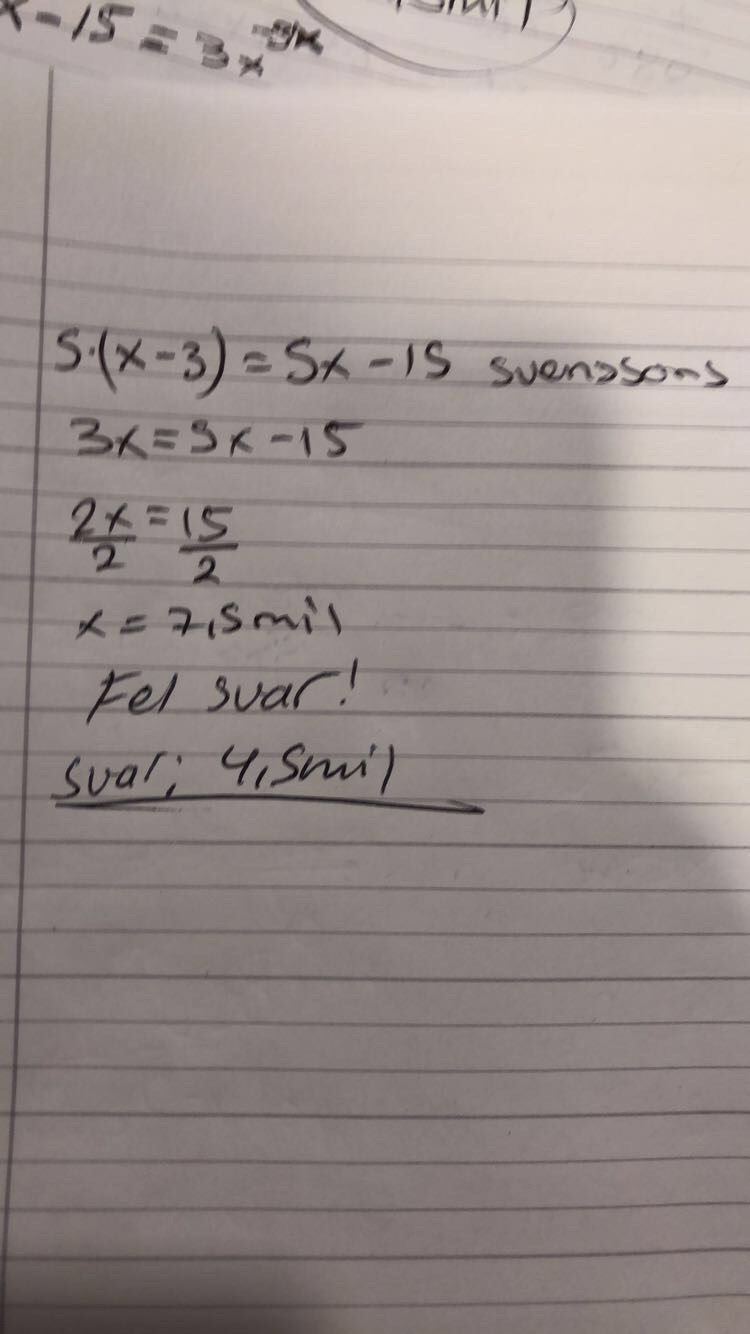 x - 15 = 3x
5·(x-3) = 5x - 15 svenssons
3x = 5x - 15
2x/2 = 15/2
x = 7,5mil
Fel svar!
svar: 4,5mil